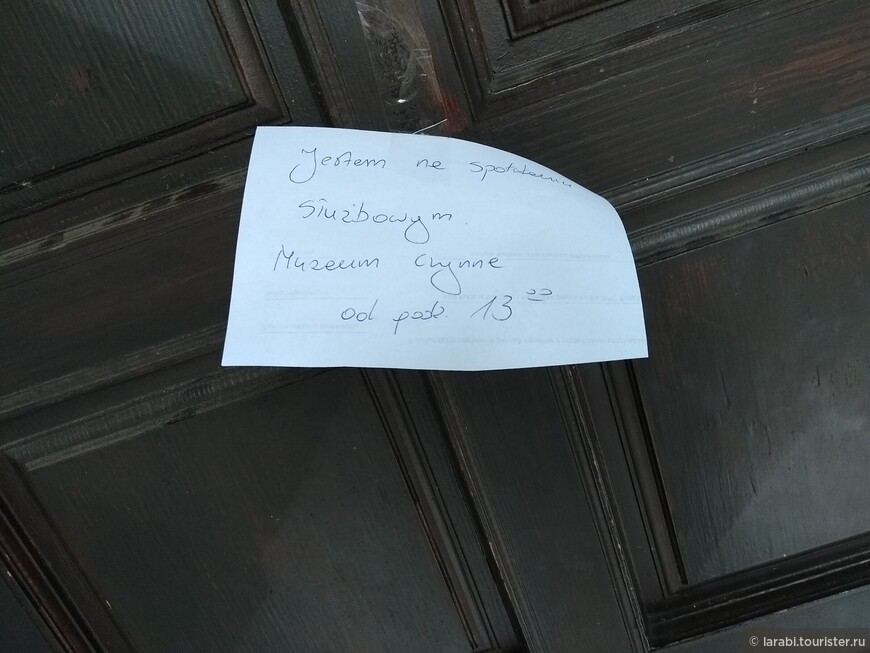 Jestem na spotkaniu
służbowym.
Muzeum czynne
od godz. 13⁰⁰
© larabi.tourister.ru